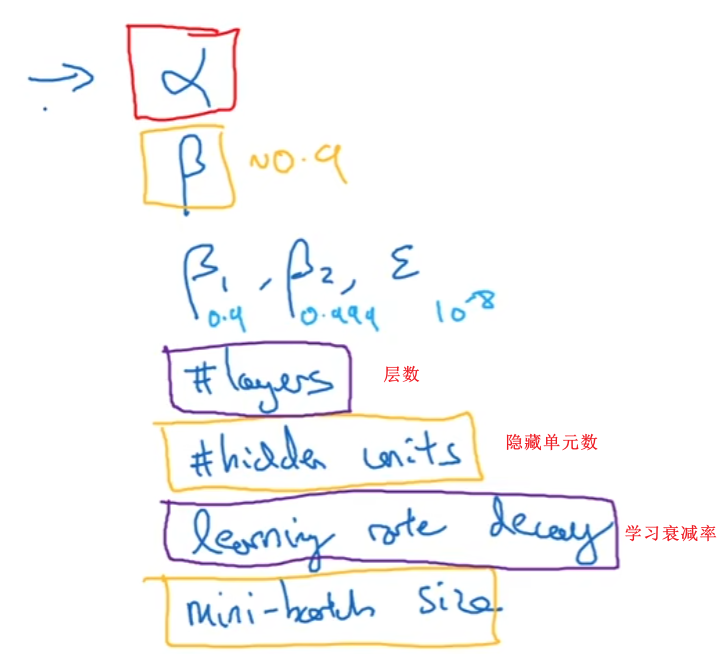 α
β ~0.9
β₁, β₂, ε
0.9 0.999 10⁻⁸
#layers 层数
#hidden units 隐藏单元数
learning rate decay 学习衰减率
mini-batch size